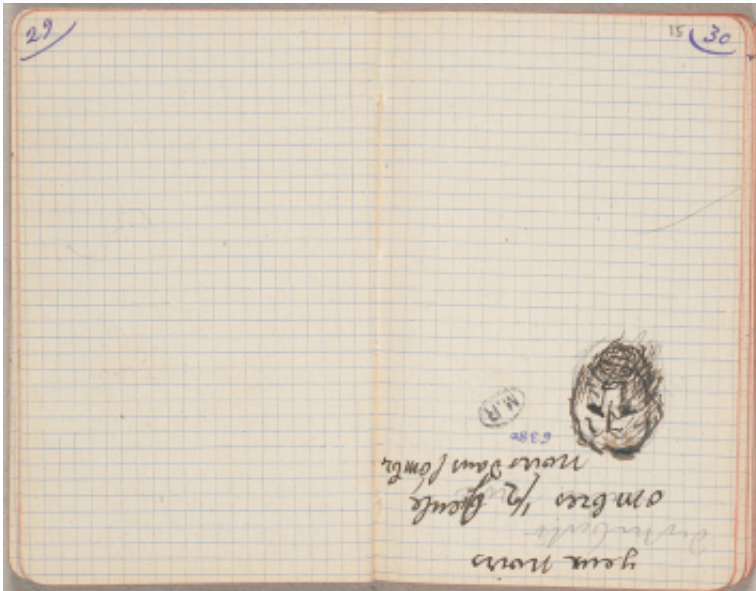 29
15 30
yeux noirs
ombres 1/2 gueule
noirs dans l'ombre
6380
M.R